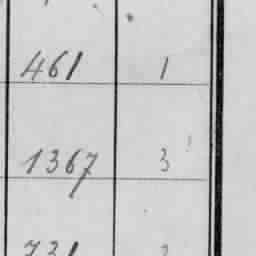 461 1
1367 3